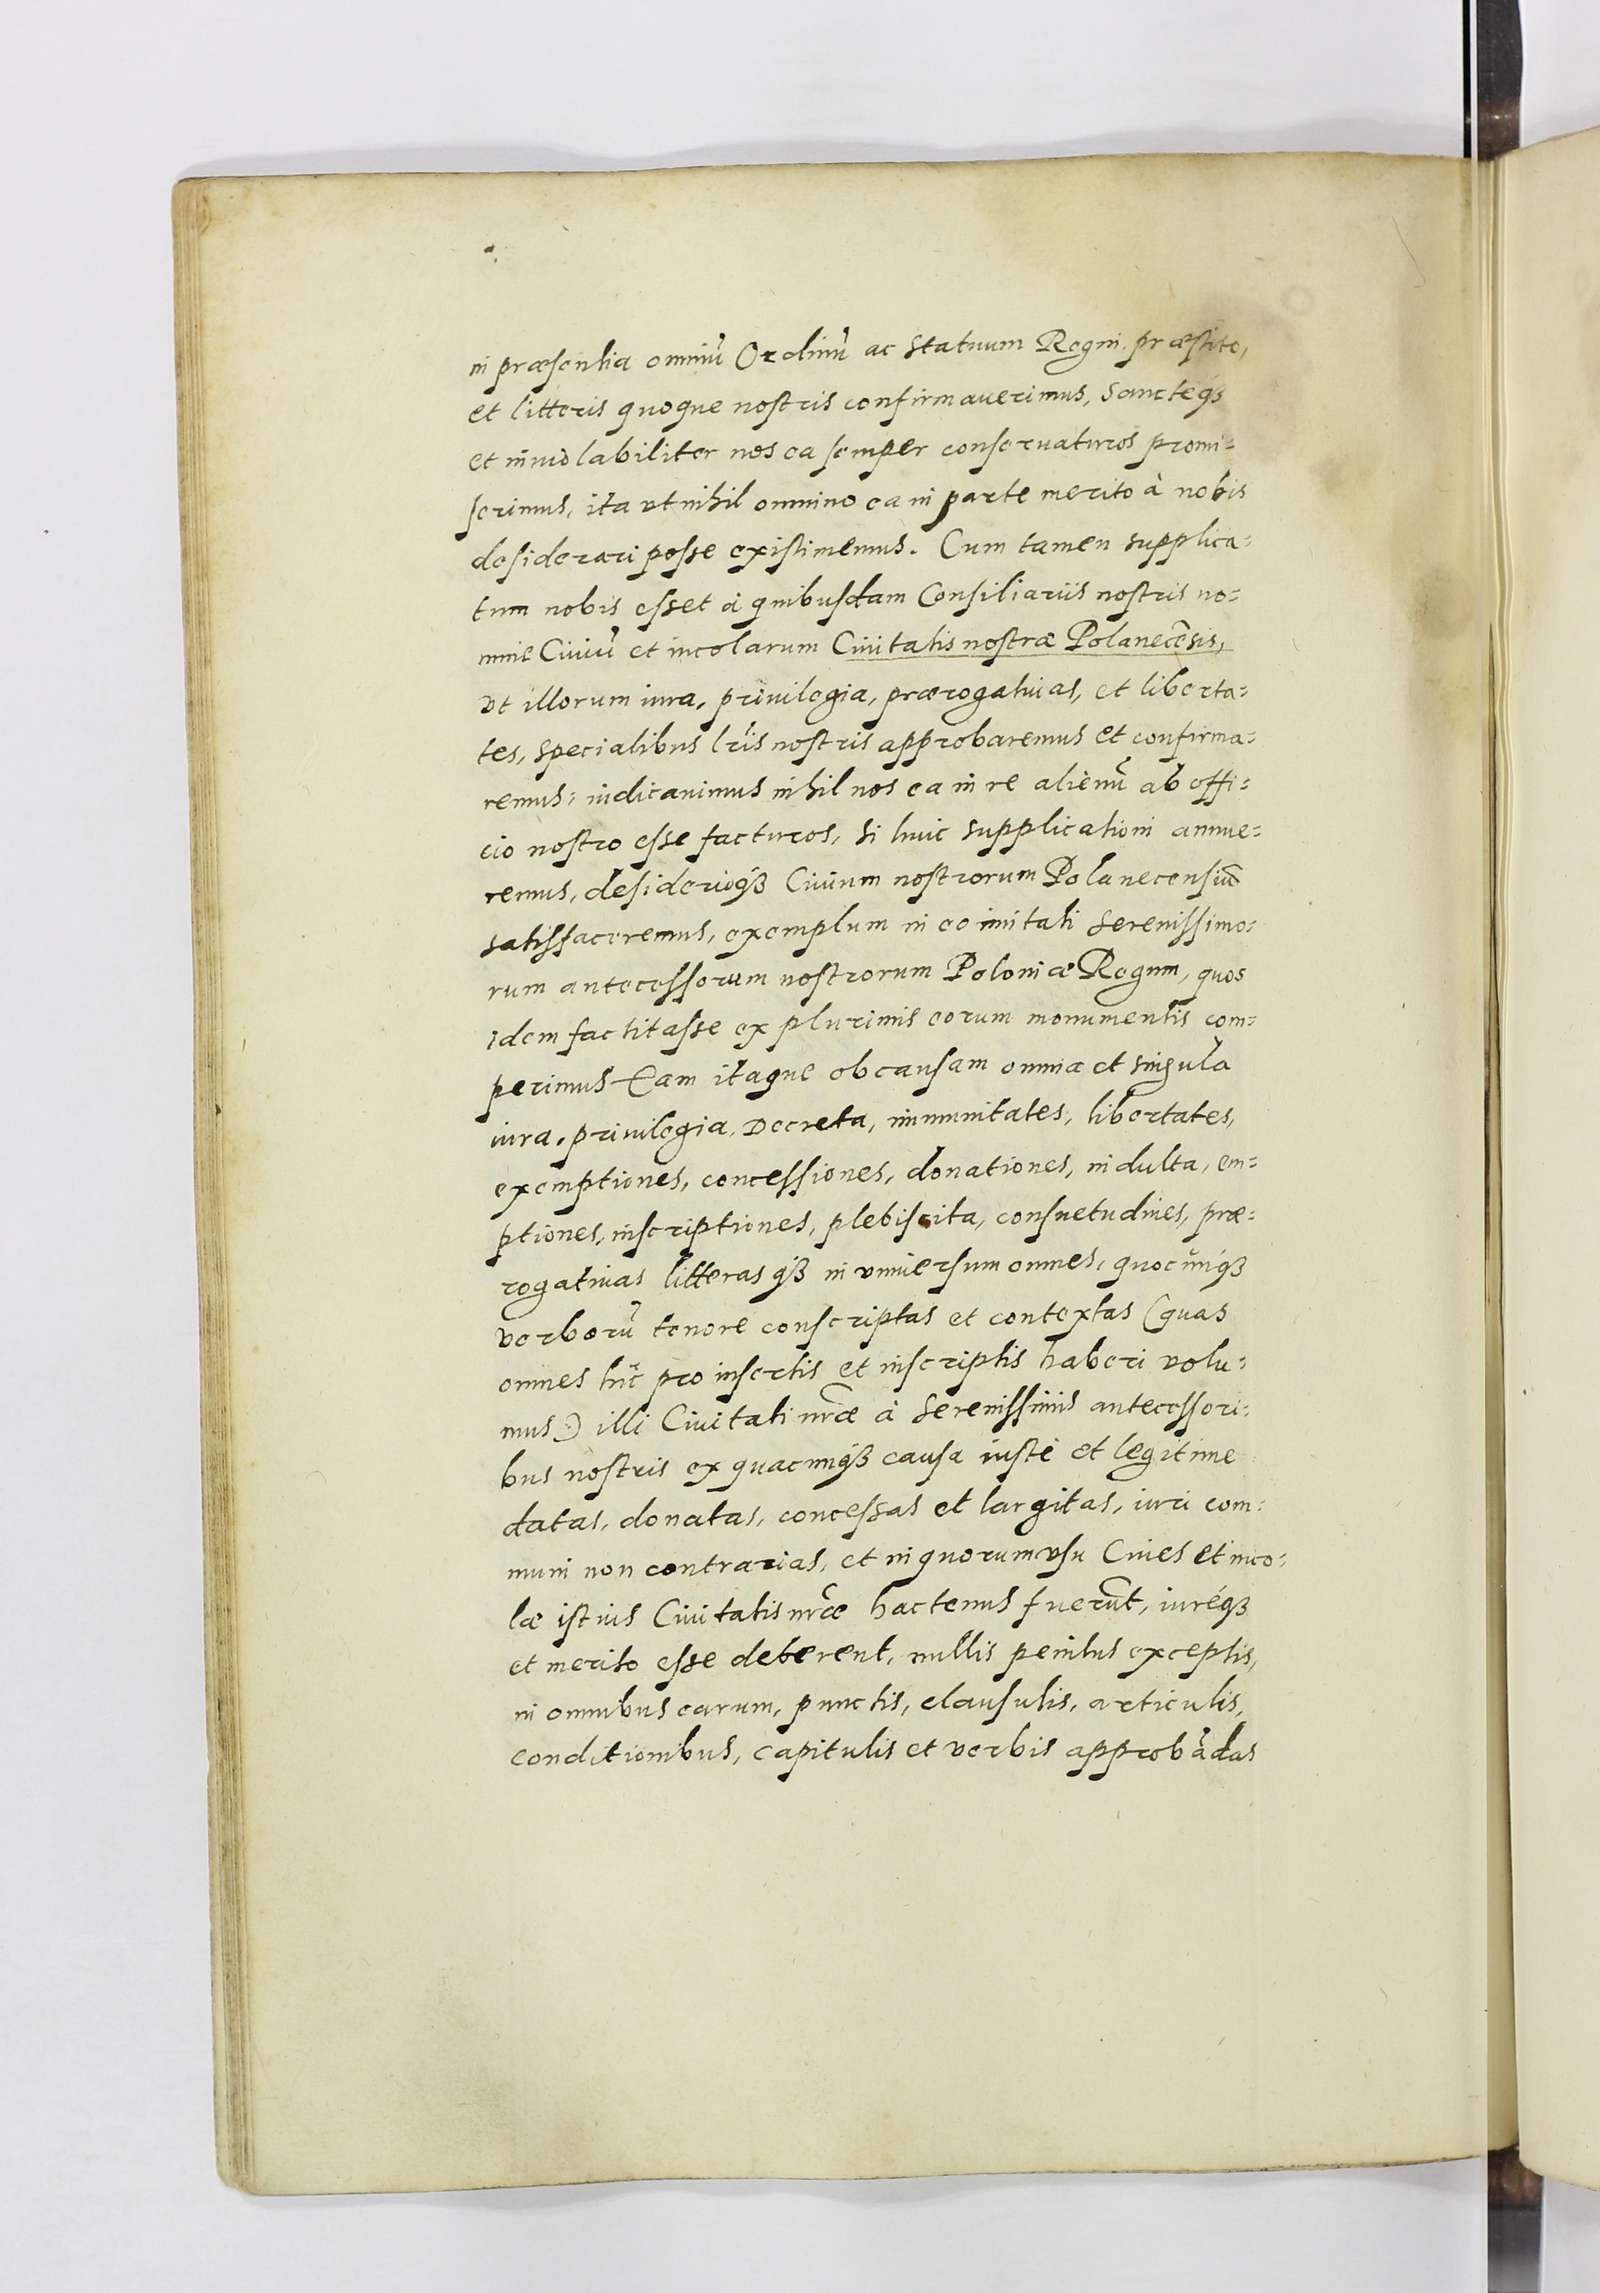 in præsentia omniũ Ordinũ ac Statuum Regni præstito,
et litteris quoque nostris confirmauerimus, Sanctéq3
et inuiolabiliter nos ea semper conseruaturos promi=
serimus, ita vt nihil omnino ea in parte merito à nobis
desiderari posse existimemus. Cum tamen supplica=
tum nobis esset à quibusdam Consiliariis nostris no=
mine Ciuiũ et incolarum Ciuitatis nostræ Polanecẽsis,
vt illorum iura, priuilegia, prærogatiuas, et liberta=
tes, specialibus lr̃is nostris approbaremus et confirma=
remus, iudicauimus nihil nos ea in re alienũ ab offi=
cio nostro esse facturos, si huic supplicationi annue=
remus, desiderioq3 Ciuium nostrorum Polanecensiũ
satisfaceremus, exemplum in eo imitati Serenissimo=
rum antecessorum nostrorum Poloniæ Regum, quos
idem factitasse ex plurimis eorum monumentis com=
perimus Eam itaque ob causam omnia et singula
iura, priuilegia, Decreta, immunitates, libertates,
exemptiones, concessiones, donationes, indulta, em=
ptiones, inscriptiones, plebiscita, consuetudines, præ=
rogatiuas litterasq3 in vniuersum omnes, quocũnq3
verborũ tenore conscriptas et contextas (quas
omnes hĩc pro insertis et inscriptis haberi volu=
mus) illi Ciuitati nr̃æ à Serenissimis antecessori=
bus nostris ex quacunq3 causa iustè et legitime
datas, donatas, concessas et largitas, iuri com=
muni non contrarias, et in quorum vsu Ciues et inco=
læ istius Ciuitatis nr̃æ hactenus fuerũt, iuréq3
et merito esse deberent, nullis penitus exceptis,
in omnibus earum, punctis, clausulis, articulis,
conditionibus, capitulis et verbis approbãdas